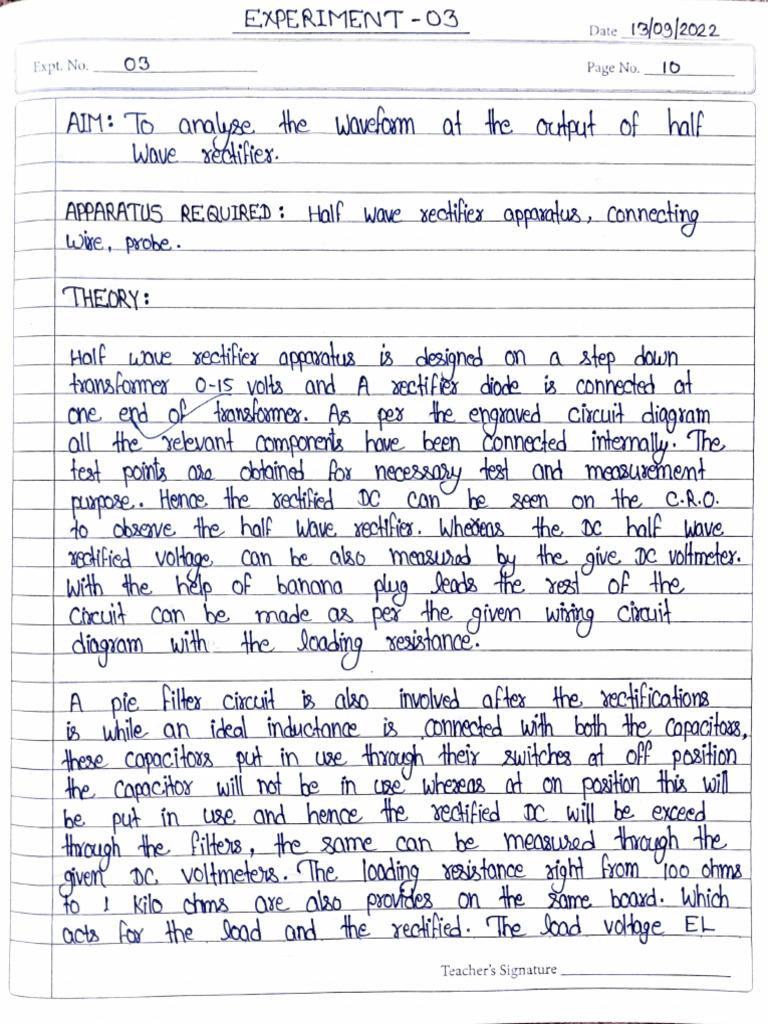 EXPERIMENT - 03
Date 13/09/2022
Expt. No. 03
Page No. 10
AIM: To analyse the waveform at the output of half
Wave rectifier.
APPARATUS REQUIRED: Half wave rectifier apparatus, connecting
wire, probe.
THEORY:
Half wave rectifier apparatus is designed on a step down
transformer 0-15 volts and A rectifier diode is connected at
one end of transformer. As per the engraved circuit diagram
all the relevant components have been connected internally. The
test points are obtained for necessary test and measurement
purpose. Hence the rectified DC can be seen on the C.R.O.
to observe the half wave rectifier. Whereas the DC half wave
rectified voltage can be also measured by the give DC voltmeter.
With the help of banana plug leads the rest of the
Circuit can be made as per the given wiring circuit
diagram with the loading resistance.
A pie filter circuit is also involved after the rectifications
is while an ideal inductance is connected with both the capacitors,
these capacitors put in use through their switches at off position
the capacitor will not be in use whereas at on position this will
be put in use and hence the rectified DC will be exceed
through the filters, the same can be measured through the
given DC voltmeters. The loading resistance right from 100 ohms
to 1 kilo ohms are also provides on the same board. Which
acts for the load and the rectified. The load voltage EL
Teacher's Signature